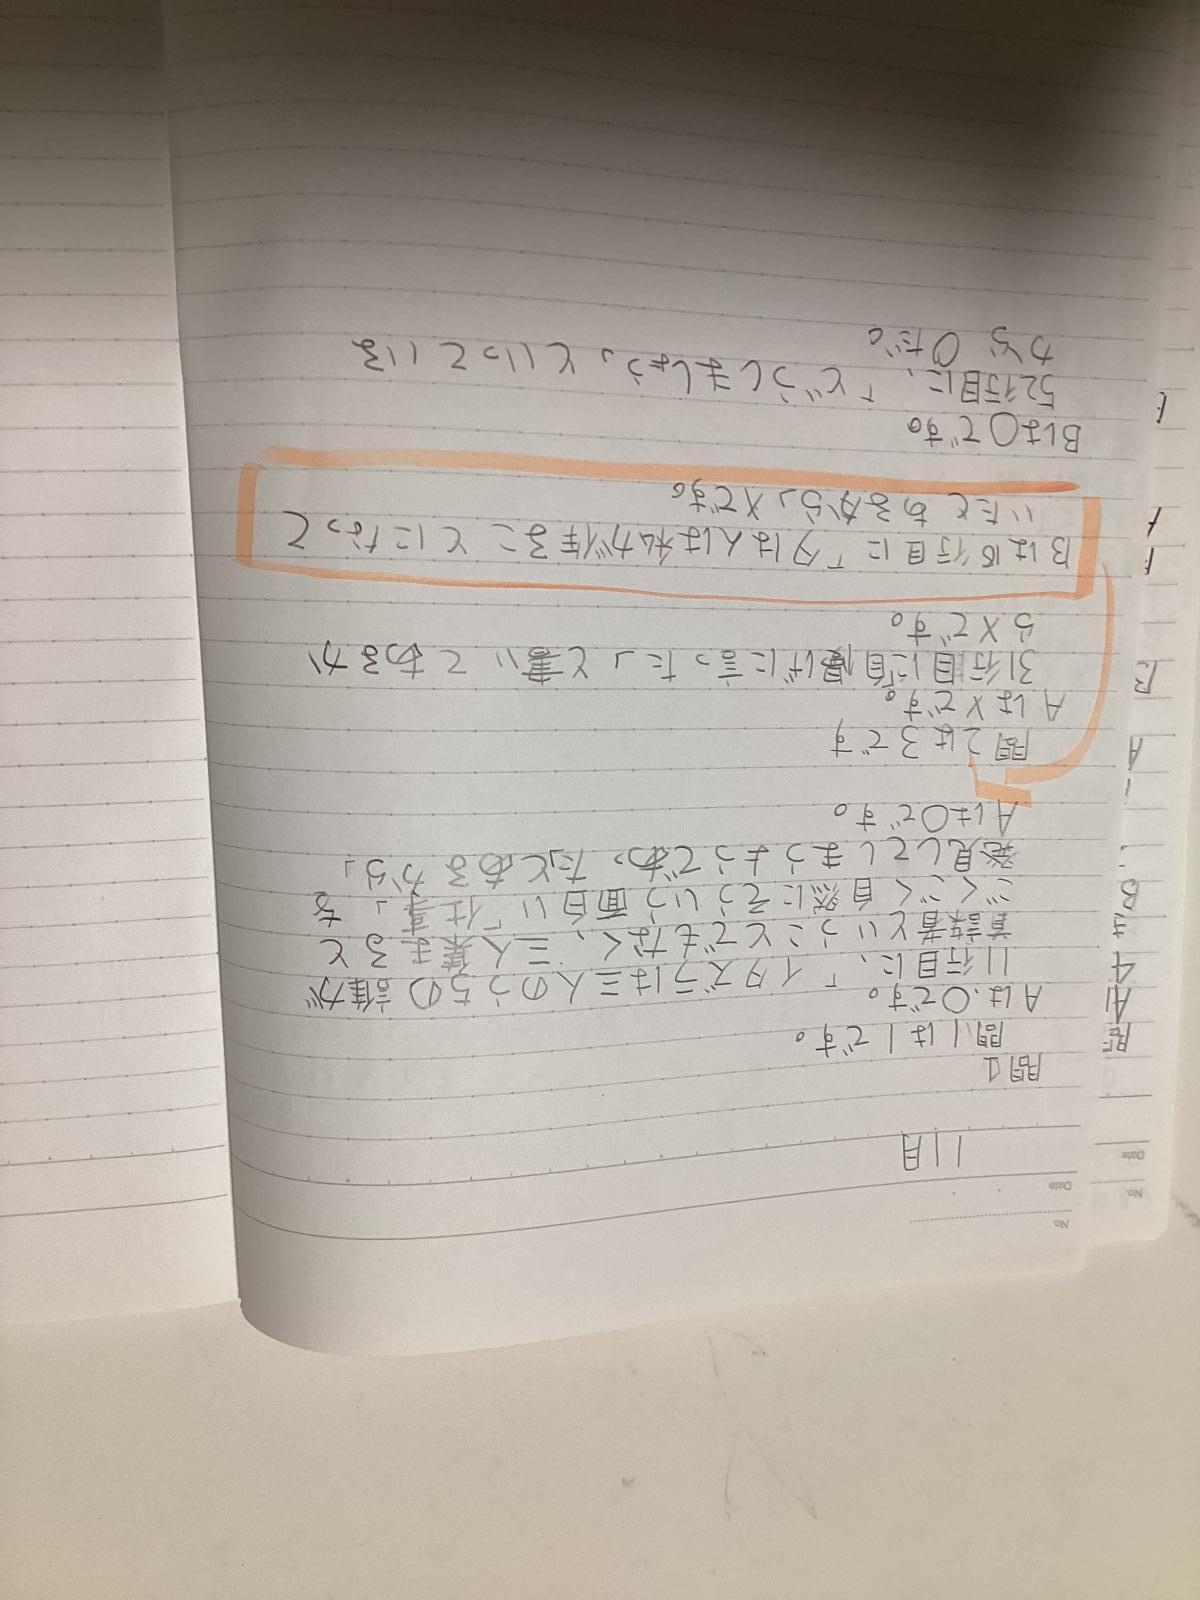 No.
Date
11月
問1
問1は1です。
Aは、○です。
11行目に、「イタズラは三人のうちの誰が
首謀者ということでもなく、三人集まると
ごくごく自然にそういう面白い「仕事」を
発見してしまうようであったとあるから」
Aは○です。
問2は3です
Aは×です。
31行目に「自慢げに言った」と書いてあるか
ら×です。
Bは16行目に「夕はんは私が作ることになって
いたとあるから」×です。
Bは○です。
52行目に、「どうしましょう」といっている
から○だ。
No.
Date
問
A1
4
B
A